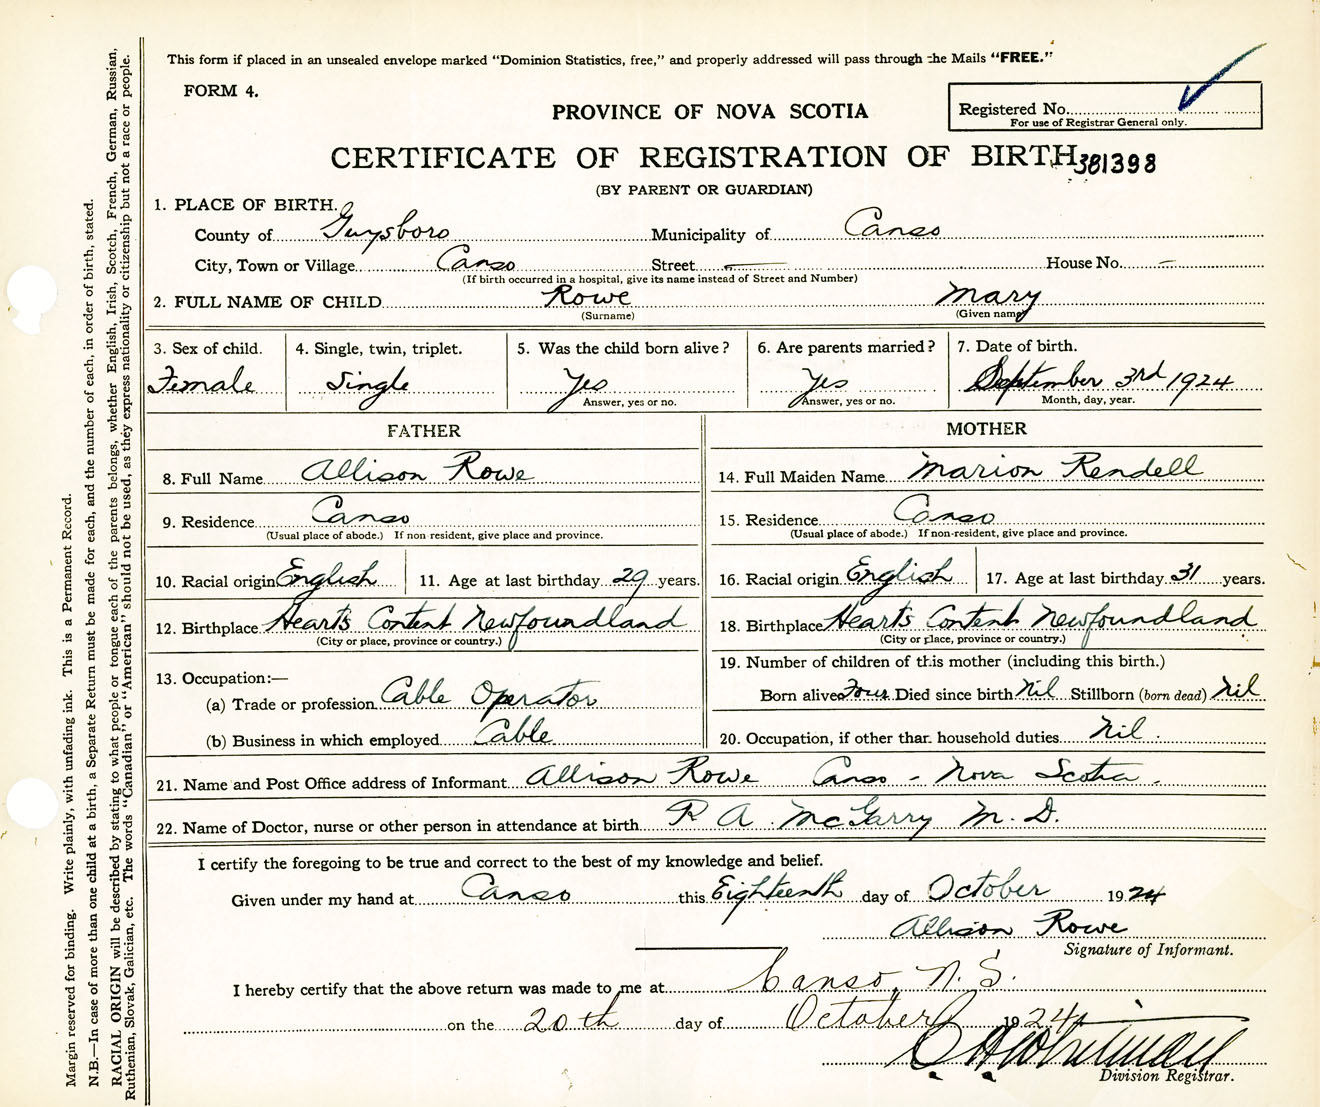 This form if placed in an unsealed envelope marked “Dominion Statistics, free,” and properly addressed will pass through the Mails “FREE.”
FORM 4.
PROVINCE OF NOVA SCOTIA
Registered No.
For use of Registrar General only.
CERTIFICATE OF REGISTRATION OF BIRTH 381398
(BY PARENT OR GUARDIAN)
1. PLACE OF BIRTH.
County of Guysboro Municipality of Canso
City, Town or Village Canso Street — House No. —
(If birth occurred in a hospital, give its name instead of Street and Number)
2. FULL NAME OF CHILD Rowe Mary
(Surname) (Given name)
3. Sex of child. 4. Single, twin, triplet. 5. Was the child born alive? 6. Are parents married? 7. Date of birth.
Female Single Yes Yes September 3rd 1924
Answer, yes or no. Answer, yes or no. Month, day, year.
FATHER MOTHER
8. Full Name Allison Rowe 14. Full Maiden Name Marion Rendell
9. Residence Canso 15. Residence Canso
(Usual place of abode.) If non-resident, give place and province. (Usual place of abode.) If non-resident, give place and province.
10. Racial origin English 11. Age at last birthday 29 years. 16. Racial origin English 17. Age at last birthday 31 years.
12. Birthplace Hearts Content Newfoundland 18. Birthplace Hearts Content Newfoundland
(City or place, province or country.) (City or place, province or country.)
13. Occupation:— 19. Number of children of this mother (including this birth.)
(a) Trade or profession Cable Operator Born alive Four Died since birth Nil Stillborn (born dead) Nil
(b) Business in which employed Cable 20. Occupation, if other than household duties Nil.
21. Name and Post Office address of Informant Allison Rowe Canso - Nova Scotia.
22. Name of Doctor, nurse or other person in attendance at birth R A. McGarry M. D.
I certify the foregoing to be true and correct to the best of my knowledge and belief.
Given under my hand at Canso this Eighteenth day of October 1924
Allison Rowe
Signature of Informant.
I hereby certify that the above return was made to me at Canso, N. S.
on the 20th day of October 1924
Division Registrar.
Margin reserved for binding. Write plainly, with unfading ink. This is a Permanent Record.
N.B.—In case of more than one child at a birth, a Separate Return must be made for each, and the number of each, in order of birth, stated.
RACIAL ORIGIN will be described by stating to what people or tongue each of the parents belongs, whether English, Irish, Scotch, French, German, Russian,
Ruthenian, Slovak, Galician, etc. The words “Canadian” or “American” should not be used, as they express nationality or citizenship but not a race or people.